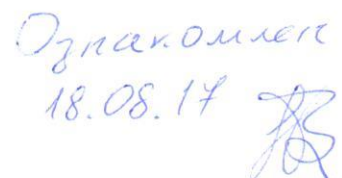 Ознакомлен
18.08.17